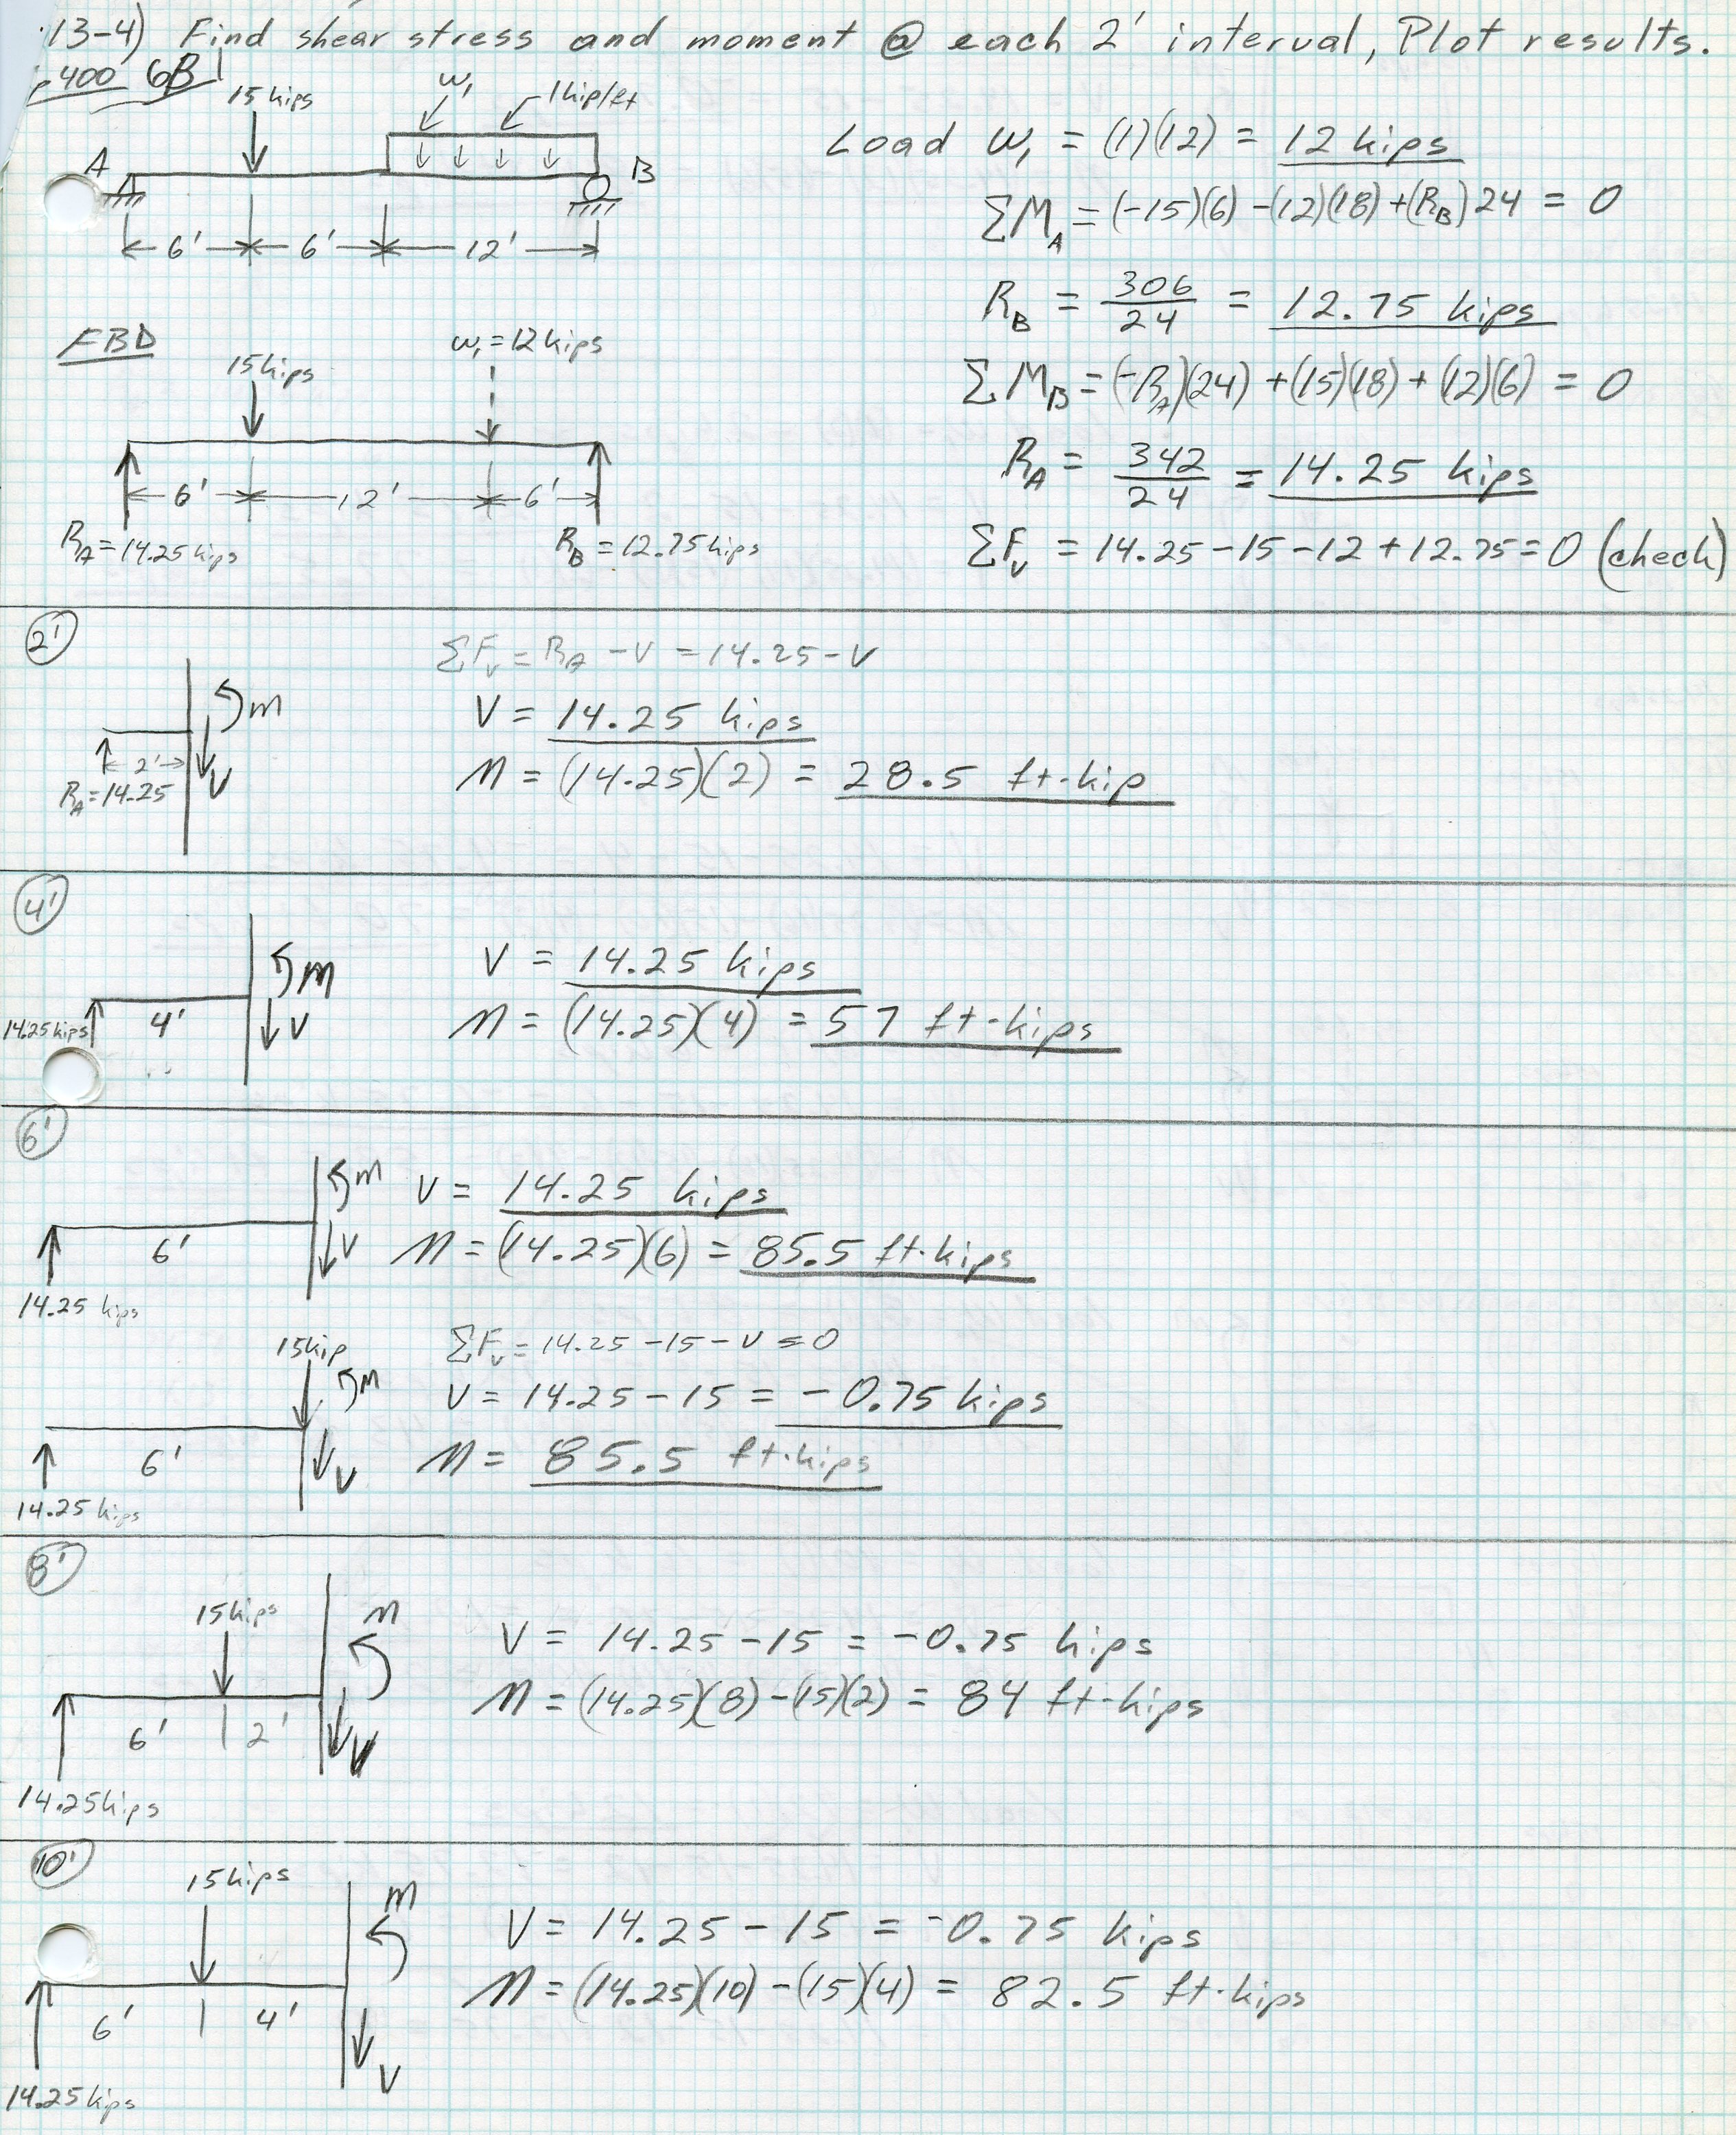 13-4) Find shear stress and moment @ each 2' interval, Plot results.
p400 6B
15 kips
w₁
1 kip/ft
A
B
6' 6' 12'
Load w₁ = (1)(12) = 12 kips
ΣM_A = (-15)(6) -(12)(18) +(R_B)24 = 0
R_B = 306/24 = 12.75 kips
ΣM_B = (-R_A)(24) +(15)(18) + (12)(6) = 0
R_A = 342/24 = 14.25 kips
ΣF_V = 14.25 -15 -12 + 12.75 = 0 (check)
FBD
15 kips
w₁ = 12 kips
6' 12' 6'
R_A = 14.25 kips
R_B = 12.75 kips
2'
ΣF_V = R_A - V = 14.25 - V
M
V = 14.25 kips
2'
V
R_A = 14.25
M = (14.25)(2) = 28.5 ft·kip
4'
M
V = 14.25 kips
14.25 kips
4'
V
M = (14.25)(4) = 57 ft·kips
6'
M
V = 14.25 kips
6'
V
M = (14.25)(6) = 85.5 ft·kips
14.25 kips
15 kip
ΣF_V = 14.25 -15 - V = 0
M
V = 14.25 - 15 = -0.75 kips
6'
V
M = 85.5 ft·kips
14.25 kips
8'
15 kips
M
V = 14.25 -15 = -0.75 kips
M = (14.25)(8) -(15)(2) = 84 ft·kips
6' 2'
V
14.25 kips
10'
15 kips
M
V = 14.25 - 15 = -0.75 kips
M = (14.25)(10) -(15)(4) = 82.5 ft·kips
6' 4'
V
14.25 kips